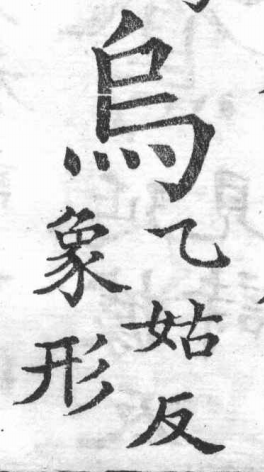 烏
乙姑反
象形